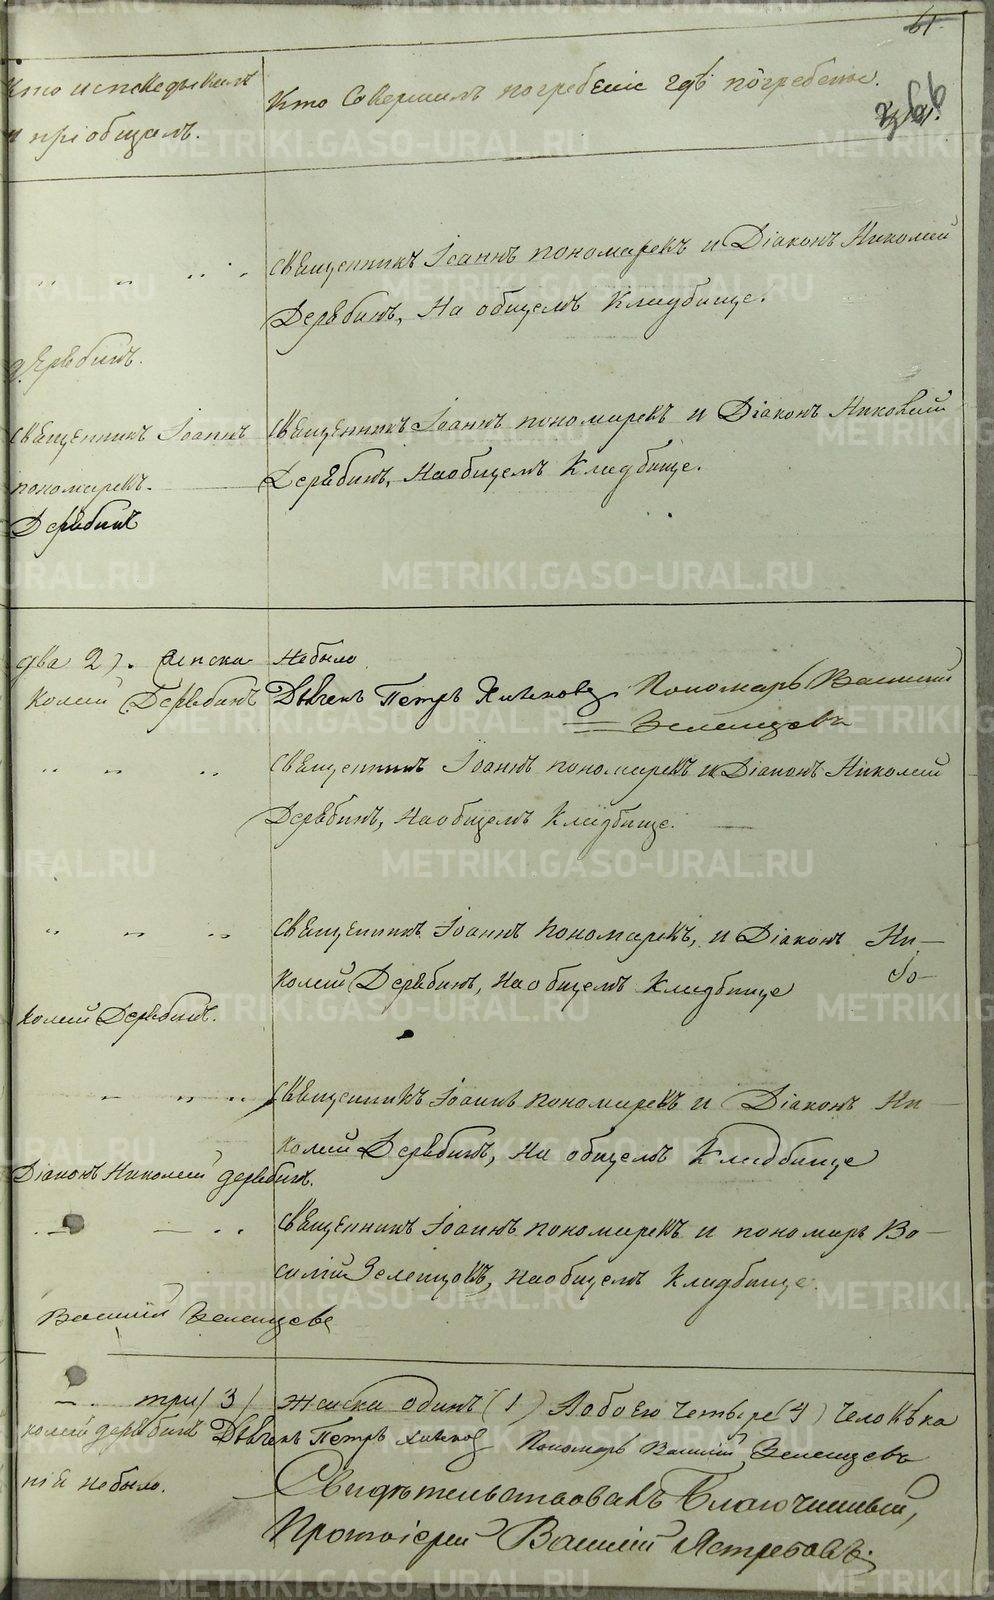 61.
Кто исповедывалъ
и пріобщалъ.
Кто Совершилъ погребеніе гдѣ погребены.
Священникъ Іоаннъ пономаревъ и Діаконъ Николай
Дерябинъ, На общемъ Кладбище.
дерябинъ.
Священникъ Іоаннъ
пономаревъ.
Дерябинъ
Священникъ Іоаннъ пономаревъ и Діаконъ Николай
Дерябинъ, На общемъ Кладбище.
два 2). женска
Небыло
колай Дерябинъ Дьячекъ Петръ Пономарь Василий
Зеленцовъ
Священникъ Іоаннъ пономаревъ и Діаконъ Николай
Дерябинъ, На общемъ Кладбище.
Священникъ Іоаннъ пономаревъ, и Діаконъ Ни-
колай Дерябинъ, На общемъ Кладбище
колай Дерябинъ.
Священникъ Іоаннъ пономаревъ и Діаконъ Ни-
колай Дерябинъ, На общемъ Кладбище
Діаконъ Николай дерябинъ.
Священникъ Іоаннъ пономаревъ и пономарь Ва-
силій Зеленцовъ, На общемъ Кладбище.
Василій Зеленцовъ
три (3) женска одинъ (1) А обоего четыре 4) человѣка
колай дерябинъ Дьячекъ Петръ Пономарь Василій Зеленцовъ
ній небыло.
Свидѣтельствовалъ Благочинный,
Протоіерей Василій Ястребовъ.
METRIKI.GASO-URAL.RU